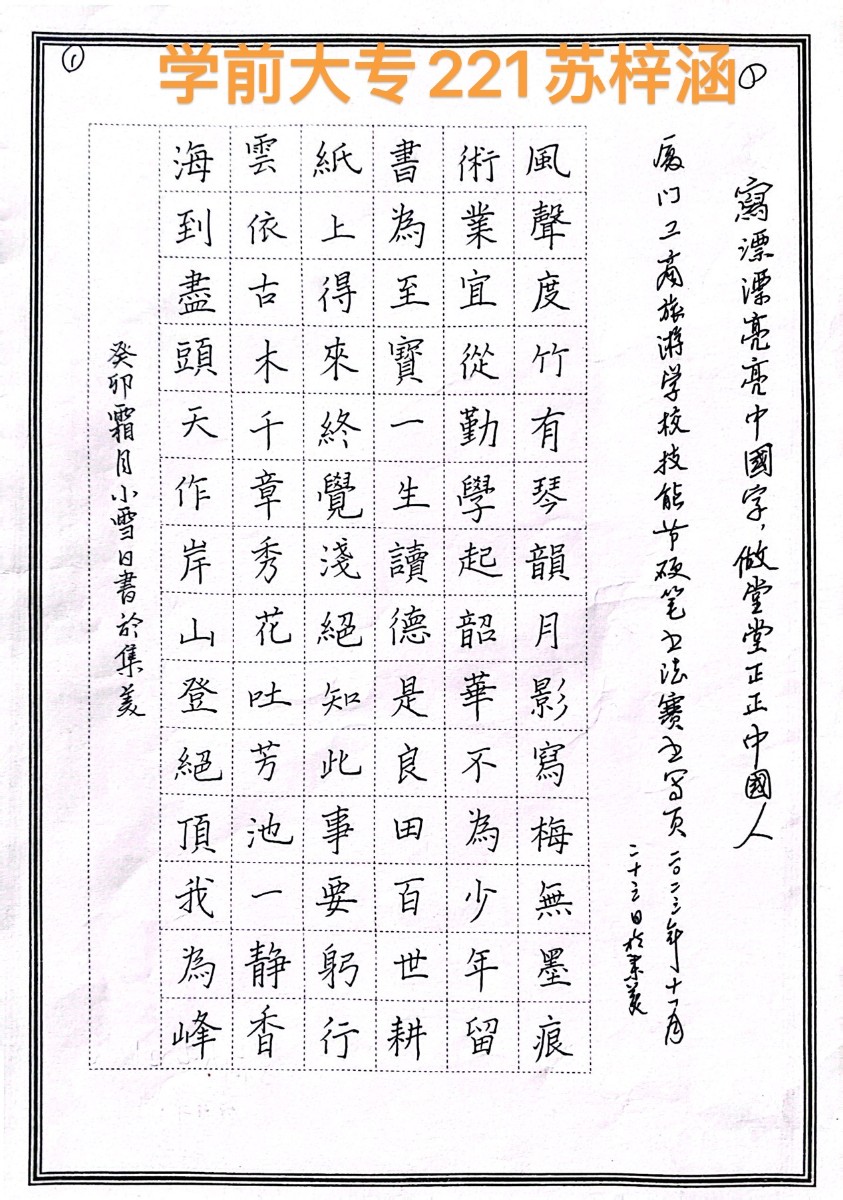 学前大专221苏梓涵
①
①
寫漂漂亮亮中國字，做堂堂正正中國人
厦门工商旅游学校技能节硬笔书法赛书写页
二〇二三年十一月
二十三日於集美
風聲度竹有琴韻月影寫梅無墨痕
術業宜從勤學起韶華不為少年留
書為至寶一生讀德是良田百世耕
紙上得來終覺淺絕知此事要躬行
雲依古木千章秀花吐芳池一静香
海到盡頭天作岸山登絕頂我為峰
癸卯霜月小雪日書於集美